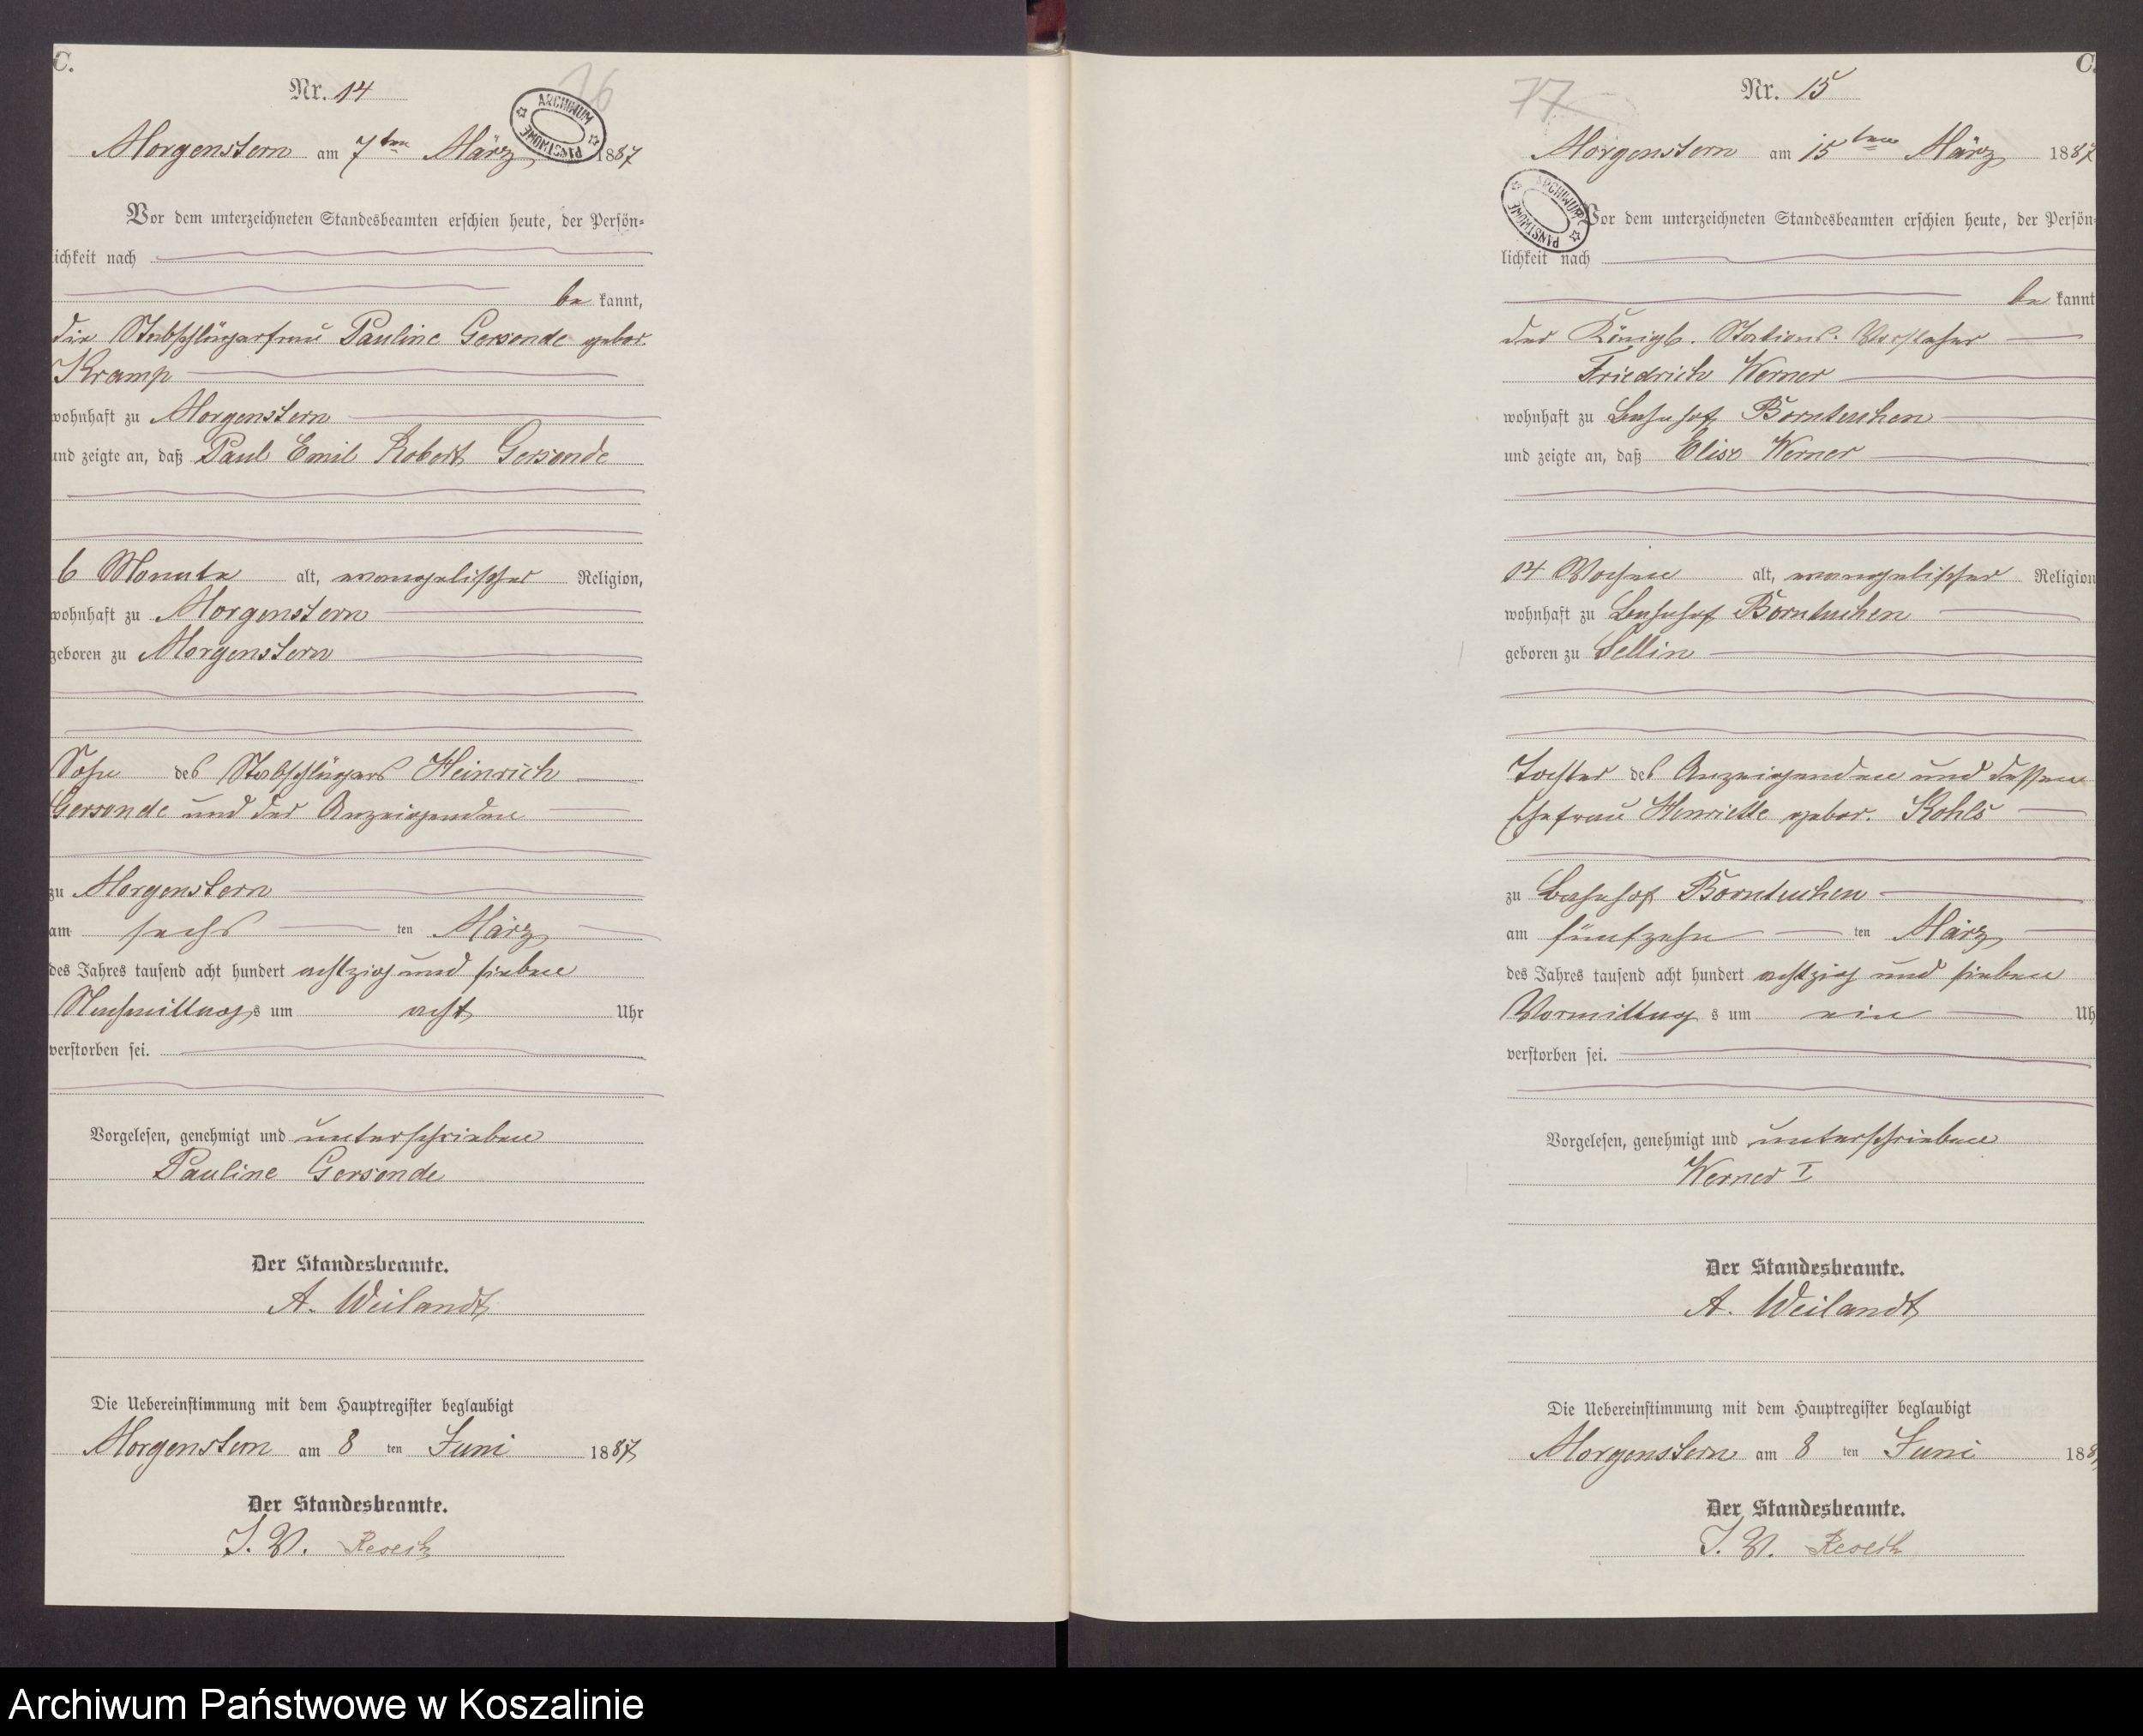 C.
Nr. 14
16
ARCHIWUM PAŃSTWOWE
Morgenstern am 7ten März 1887
Vor dem unterzeichneten Standesbeamten erschien heute, der Persön=
lichkeit nach
be kannt,
die Stabschlägerfrau Pauline Gersonde gebor.
Kramp
wohnhaft zu Morgenstern
und zeigte an, daß Paul Emil Robert Gersonde
6 Monate alt, evangelischer Religion,
wohnhaft zu Morgenstern
geboren zu Morgenstern
Sohn des Stabschlägers Heinrich
Gersonde und der Anzeigenden
zu Morgenstern
am sechs ten März
des Jahres tausend acht hundert achtzig und sieben
Nachmittags um acht Uhr
verstorben sei.
Vorgelesen, genehmigt und unterschrieben
Pauline Gersonde
Der Standesbeamte.
A. Weilandt
Die Uebereinstimmung mit dem Hauptregister beglaubigt
Morgenstern am 8 ten Juni 1887
Der Standesbeamte.
I. V.
C.
Nr. 15
17
ARCHIWUM PAŃSTWOWE
Morgenstern am 15ten März 1887
Vor dem unterzeichneten Standesbeamten erschien heute, der Persön=
lichkeit nach
be kannt
der Königl. Stations-Vorsteher
Friedrich Werner
wohnhaft zu Bahnhof Borntuchen
und zeigte an, daß Elise Werner
14 Wochen alt, evangelischer Religion
wohnhaft zu Bahnhof Borntuchen
geboren zu Sellin
Tochter des Anzeigenden und dessen
Ehefrau Henriette gebor. Kohls
zu Bahnhof Borntuchen
am fünfzehn ten März
des Jahres tausend acht hundert achtzig und sieben
Vormittag s um ein Uh
verstorben sei.
Vorgelesen, genehmigt und unterschrieben
Werner I
Der Standesbeamte.
A. Weilandt
Die Uebereinstimmung mit dem Hauptregister beglaubigt
Morgenstern am 8 ten Juni 188
Der Standesbeamte.
I. V.
Archiwum Państwowe w Koszalinie